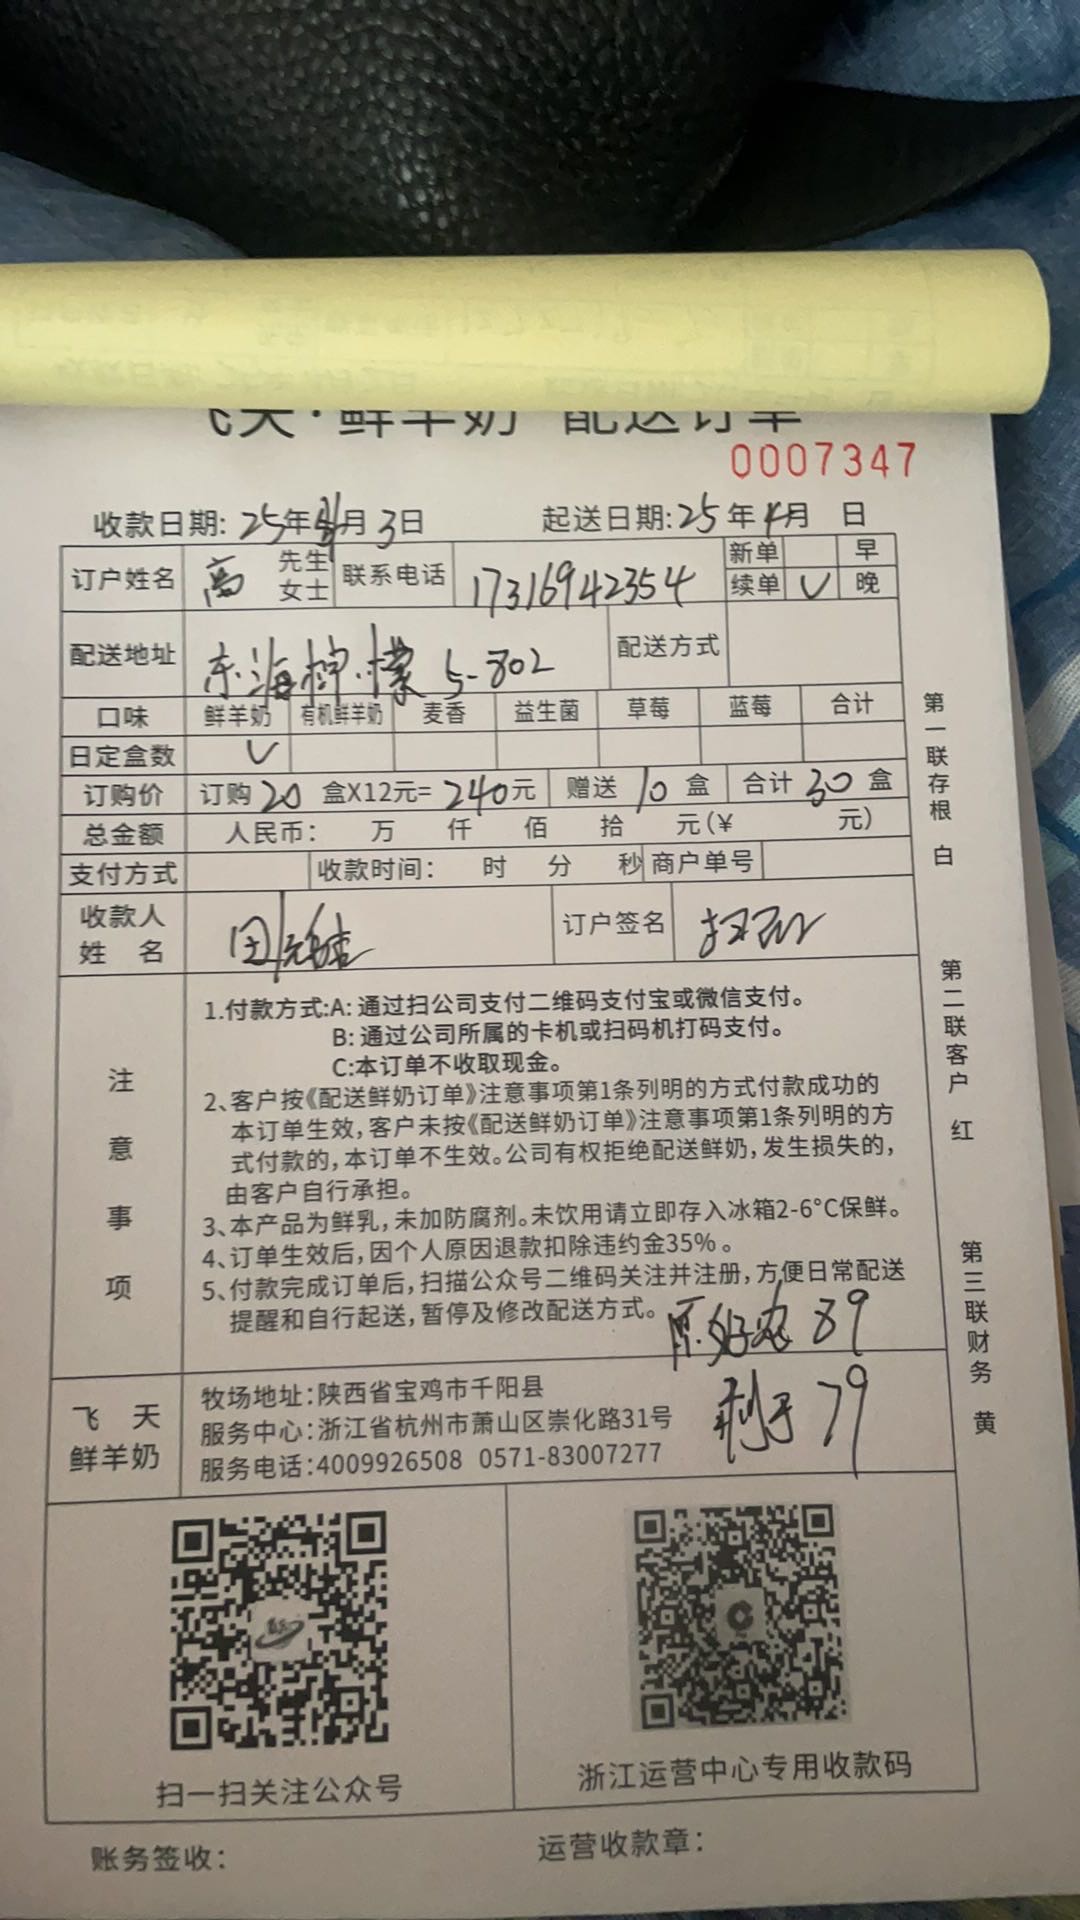 飞天·鲜羊奶 配送订单
0007347
收款日期: 25年4月3日 起送日期:25年4月 日
订户姓名 高 先生 女士 联系电话 17316942354 新单 早
续单 V 晚
配送地址 东海柠檬 5-802 配送方式
口味 鲜羊奶 有机鲜羊奶 麦香 益生菌 草莓 蓝莓 合计
日定盒数 V
订购价 订购20盒X12元=240元 赠送10盒 合计30盒
总金额 人民币: 万 仟 佰 拾 元(¥ 元)
支付方式 收款时间: 时 分 秒 商户单号
收款人姓名 田 订户签名
注意事项
1.付款方式:A: 通过扫公司支付二维码支付宝或微信支付。
B: 通过公司所属的卡机或扫码机打码支付。
C:本订单不收取现金。
2、客户按《配送鲜奶订单》注意事项第1条列明的方式付款成功的
本订单生效,客户未按《配送鲜奶订单》注意事项第1条列明的方
式付款的,本订单不生效。公司有权拒绝配送鲜奶,发生损失的,
由客户自行承担。
3、本产品为鲜乳,未加防腐剂。未饮用请立即存入冰箱2-6°C保鲜。
4、订单生效后,因个人原因退款扣除违约金35%。
5、付款完成订单后,扫描公众号二维码关注并注册,方便日常配送
提醒和自行起送,暂停及修改配送方式。
89
79
飞天鲜羊奶
牧场地址:陕西省宝鸡市千阳县
服务中心:浙江省杭州市萧山区崇化路31号
服务电话:4009926508 0571-83007277
扫一扫关注公众号
浙江运营中心专用收款码
账务签收:
运营收款章:
第一联存根 白
第二联客户 红
第三联财务 黄